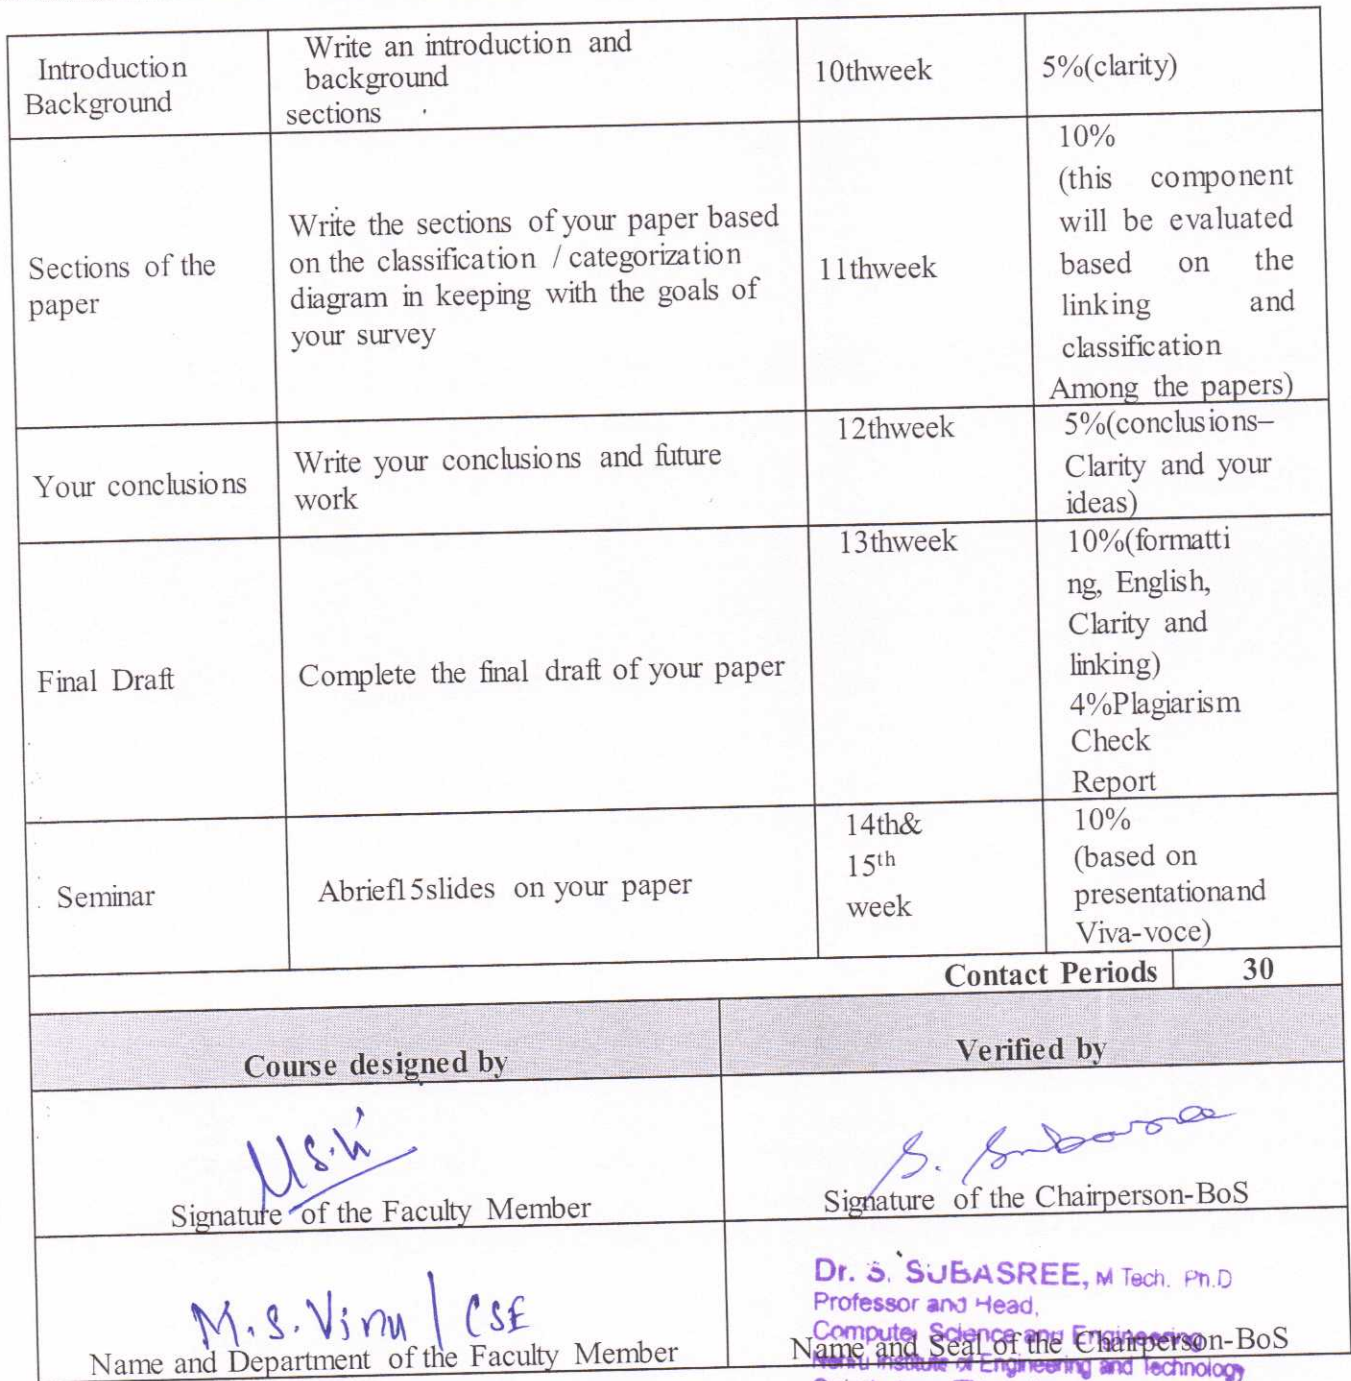 Introduction
Background
Write an introduction and
background
sections
10thweek
5%(clarity)
Sections of the
paper
Write the sections of your paper based
on the classification / categorization
diagram in keeping with the goals of
your survey
11thweek
10%
(this component
will be evaluated
based on the
linking and
classification
Among the papers)
Your conclusions
Write your conclusions and future
work
12thweek
5%(conclusions–
Clarity and your
ideas)
Final Draft
Complete the final draft of your paper
13thweek
10%(formatti
ng, English,
Clarity and
linking)
4%Plagiarism
Check
Report
Seminar
Abrief15slides on your paper
14th&
15th
week
10%
(based on
presentationand
Viva-voce)
Contact Periods 30
Course designed by
Verified by
S. Subasree
Signature of the Faculty Member
Signature of the Chairperson-BoS
M.S.Vinu / CSE
Name and Department of the Faculty Member
Dr. S. SUBASREE, M Tech. Ph.D
Professor and Head,
Computer Science and Engineering
Name and Seal of the Chairperson-BoS
Institute of Engineering and Technology